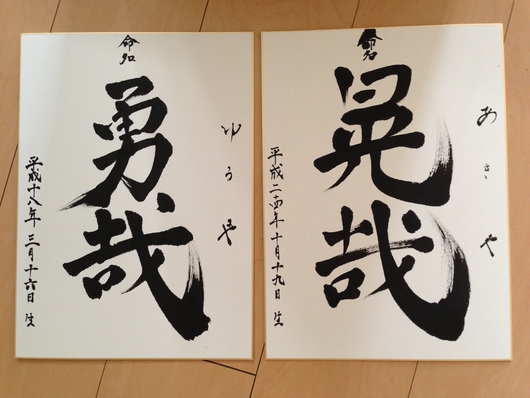 命名
勇哉
ゆうや
平成十八年三月十六日 生
命名
晃哉
あさや
平成二十四年十月十九日 生